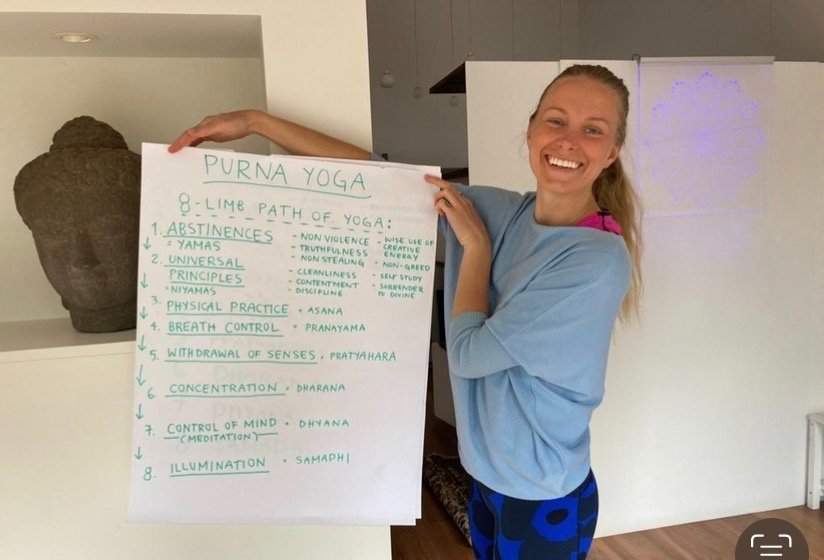 PURNA YOGA
8-LIMB PATH OF YOGA:
1. ABSTINENCES
° YAMAS
- NON VIOLENCE
- TRUTHFULNESS
- NON STEALING
- WISE USE OF
CREATIVE
ENERGY
- NON-GREED
2. UNIVERSAL
PRINCIPLES
° NIYAMAS
- CLEANLINESS
- CONTENTMENT
- DISCIPLINE
- SELF STUDY
- SURRENDER
TO DIVINE
3. PHYSICAL PRACTICE ° ASANA
4. BREATH CONTROL ° PRANAYAMA
5. WITHDRAWAL OF SENSES ° PRATYAHARA
6. CONCENTRATION ° DHARANA
7. CONTROL OF MIND ° DHYANA
(MEDITATION)
8. ILLUMINATION ° SAMADHI